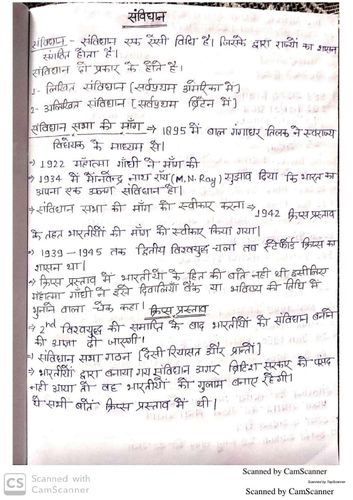 संविधान
संविधान - संविधान एक ऐसी विधि है। जिसके द्वारा राज्यों का शासन
संचालित होता है।
संविधान दो प्रकार के होते है।
1- लिखित संविधान [सर्वप्रथम अमेरिका में]
2- अलिखित संविधान [सर्वप्रथम ब्रिटेन में]
संविधान सभा की माँग → 1895 में बाल गंगाधर तिलक ने स्वराज्य
विधेयक के माध्यम से।
→ 1922 महात्मा गाँधी ने माँग की
→ 1934 में मानवेन्द्र नाथ राय (M.N. Roy) सुझाव दिया कि भारत का
अपना एक संविधान है।
→ संविधान सभा की माँग को स्वीकार करना → 1942 क्रिप्स प्रस्ताव
के तहत भारतीयों की माँग को स्वीकार किया गया।
→ 1939-1945 तक द्वितीय विश्वयुद्ध चला तब क्रिप्स का
शासन था।
→ क्रिप्स प्रस्ताव में भारतीयों के हित की बातें नही थी इसीलिए
महात्मा गाँधी ने इसे दिवालिया बैंक या भविष्य की तिथि में
भुनने वाला चेक कहा।
क्रिप्स प्रस्ताव
→ 2nd विश्वयुद्ध की समाप्ति के बाद भारतीयों को संविधान बनाने
की आज्ञा दी जाएगी।
→ संविधान सभा गठन [देसी रियासत और प्रान्तों]
→ भारतीयों द्वारा बनाया गया संविधान अगर ब्रिटिश सरकार को पसंद
नही आया तो वह भारतीयों को गुलाम बनाए रहेगी।
ये सभी बातें क्रिप्स प्रस्ताव में थी।
CS Scanned with
CamScanner
Scanned by CamScanner
Scanned by TapScanner
Scanned by CamScanner